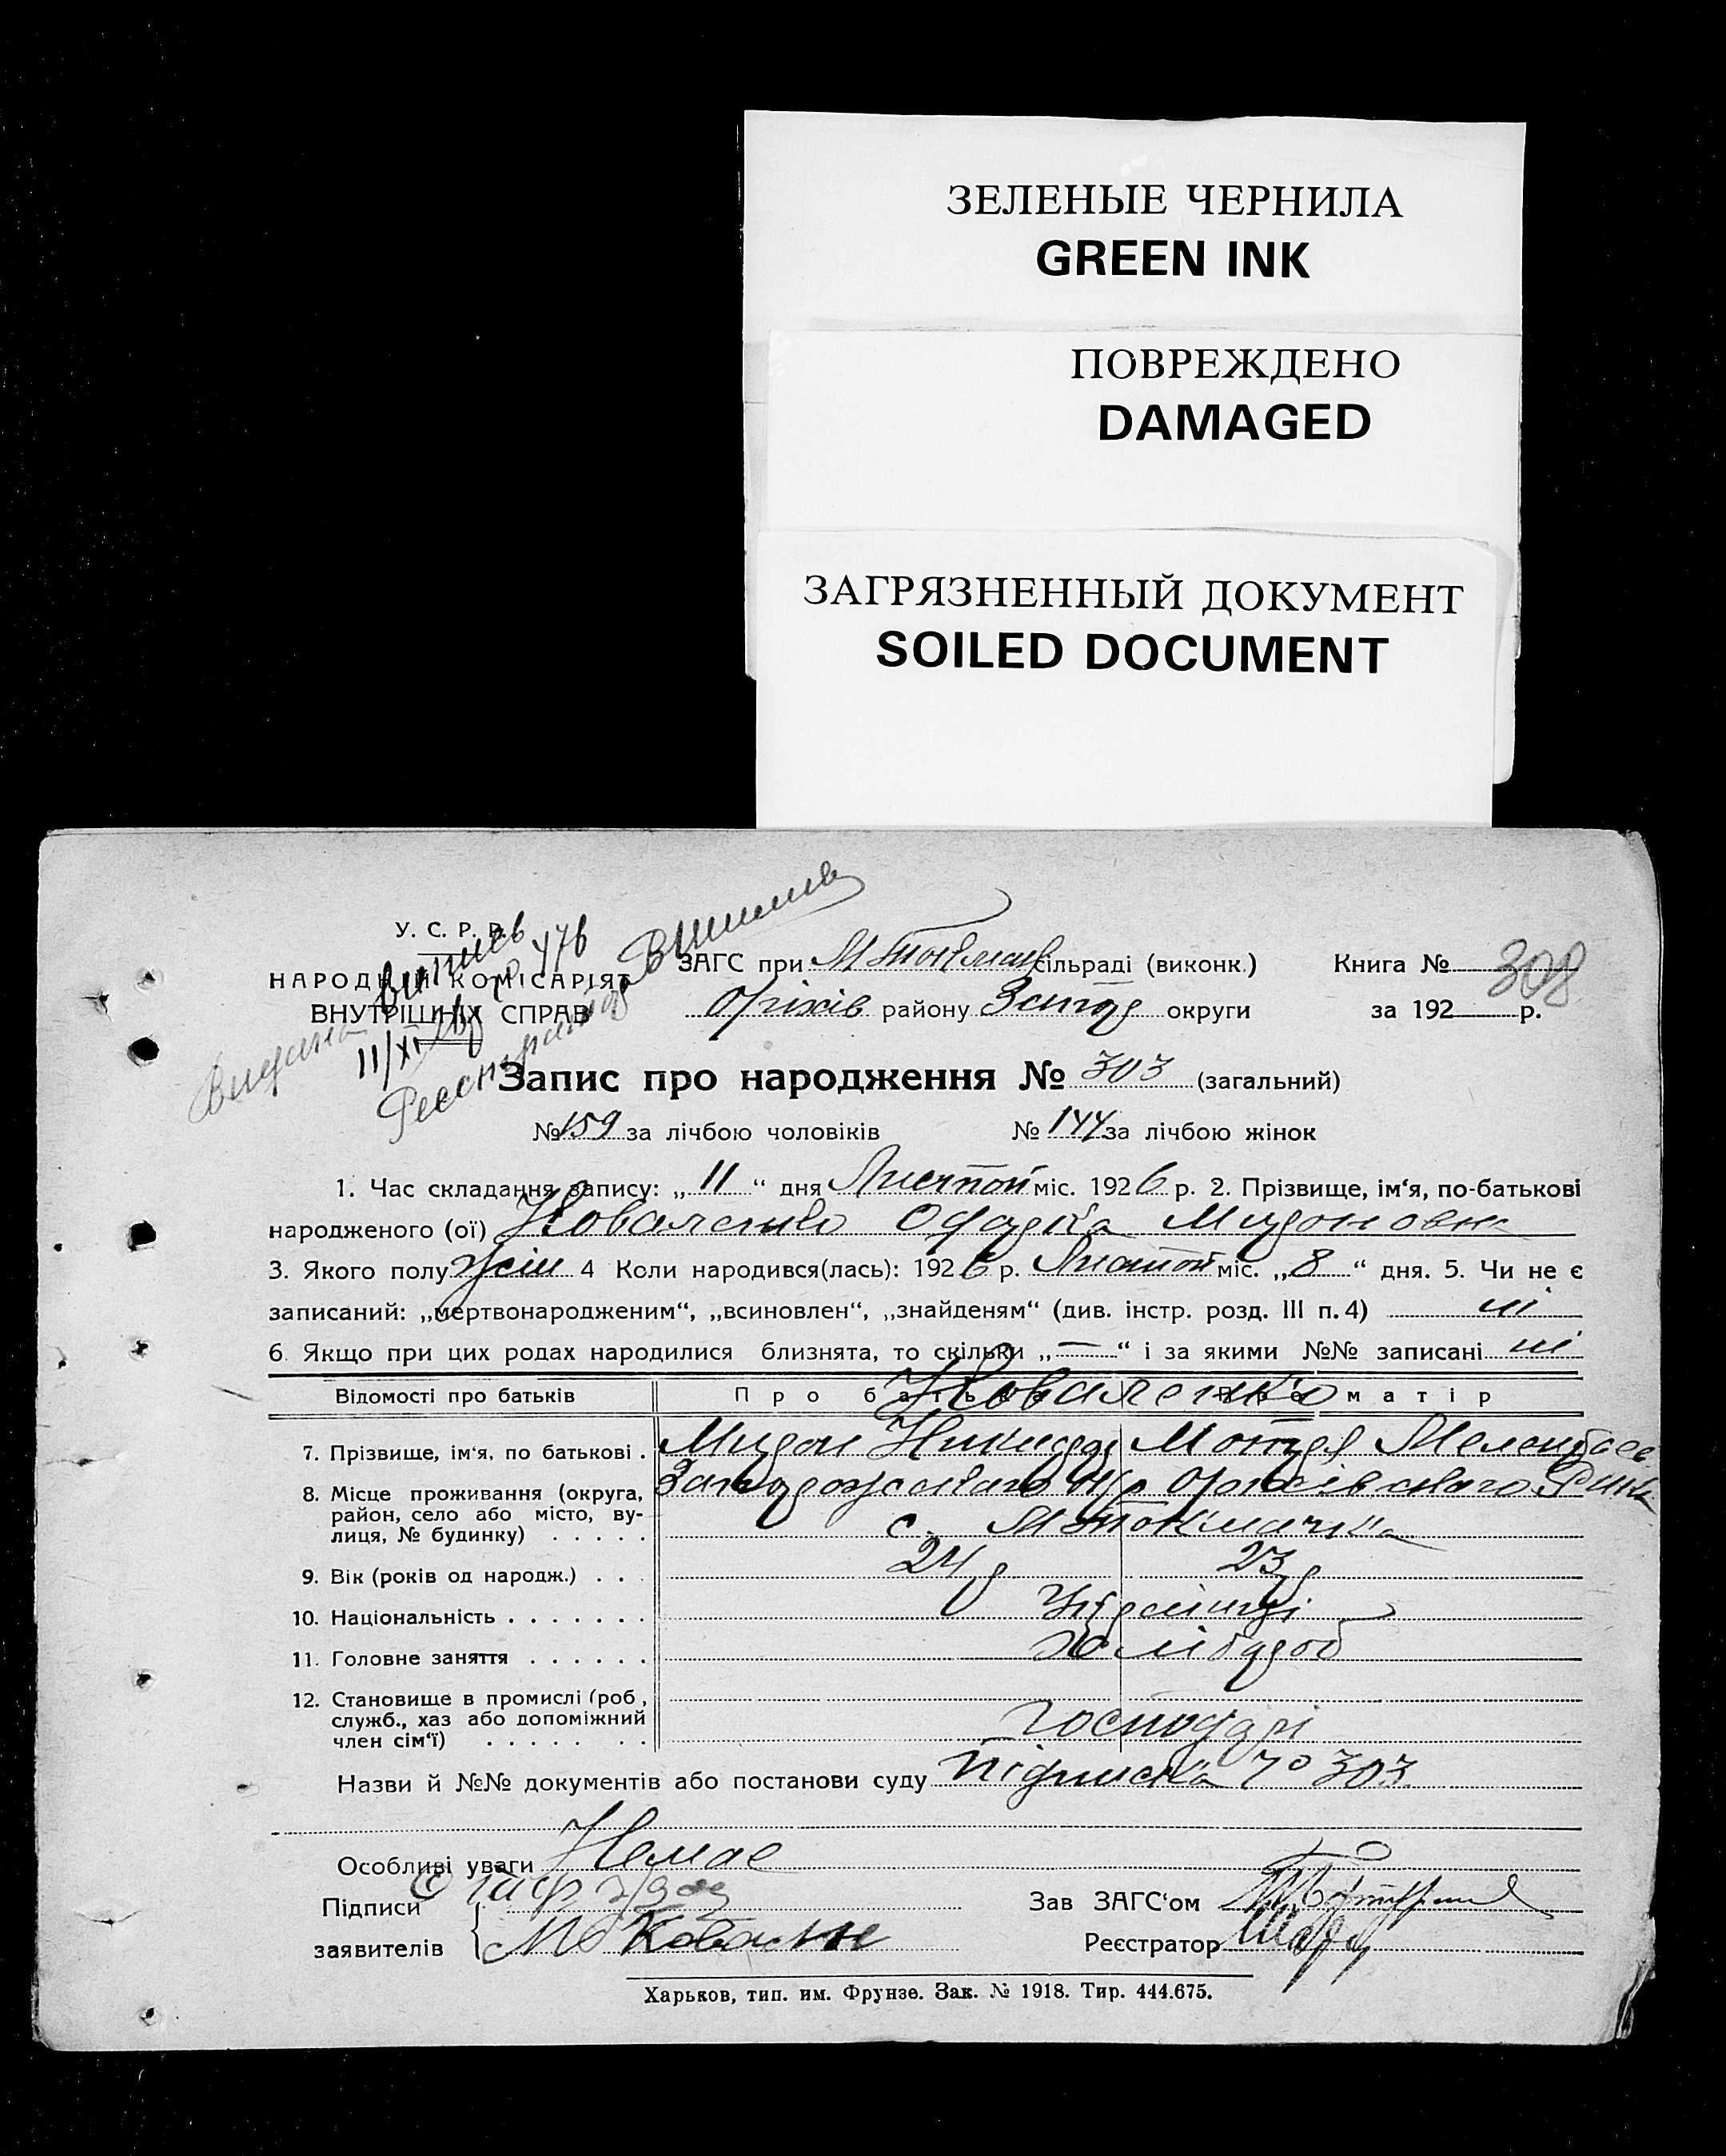 ЗЕЛЕНЫЕ ЧЕРНИЛА
GREEN INK
ПОВРЕЖДЕНО
DAMAGED
ЗАГРЯЗНЕННЫЙ ДОКУМЕНТ
SOILED DOCUMENT
У. С. Р. Р.
НАРОДНІЙ КОМІСАРІЯТ
ВНУТРІШНІХ СПРАВ
ЗАГС при М Токмац сільраді (виконк.)
Оріхів району Запор округи
Книга № 308
за 192 р.
Запис про народження № 303 (загальний)
№ 159 за лічбою чоловіків № 144 за лічбою жінок
1. Час складання запису: „ 11 “ дня Листоп міс. 1926 р. 2. Прізвище, ім‘я, по-батькові
народженого (ої) Коваленко Мироновна
3. Якого полу жін 4 Коли народився(лась): 1926 р. Листоп міс. „ 8 “ дня. 5. Чи не є
записаний: „мертвонародженим“, „всиновлен“, „знайденям“ (див. інстр. розд. III п. 4) ні
6. Якщо при цих родах народилися близнята, то скільки „ — “ і за якими №№ записані ні
Відомості про батьків Про батька Про матір
Коваленко
7. Прізвище, ім‘я, по батькові . Мирон
8. Місце проживання (округа, Запорожського Оріхівського
район, село або місто, ву-
лиця, № будинку) . . . . . с. М Токмачка
9. Вік (років од народж.) . . . 24 р 23 р
10. Національність . . . . . . . Українці
11. Головне заняття . . . . . . Хлібороб
12. Становище в промислі (роб,
служб., хаз або допоміжний
член сім‘ї) . . . . . . . Господарі
Назви й №№ документів або постанови суду Підписка № 303
Особливі уваги Немає
Підписи
заявителів
Зав ЗАГС‘ом
Реєстратор
Харьков, тип. им. Фрунзе. Зак. № 1918. Тир. 444.675.